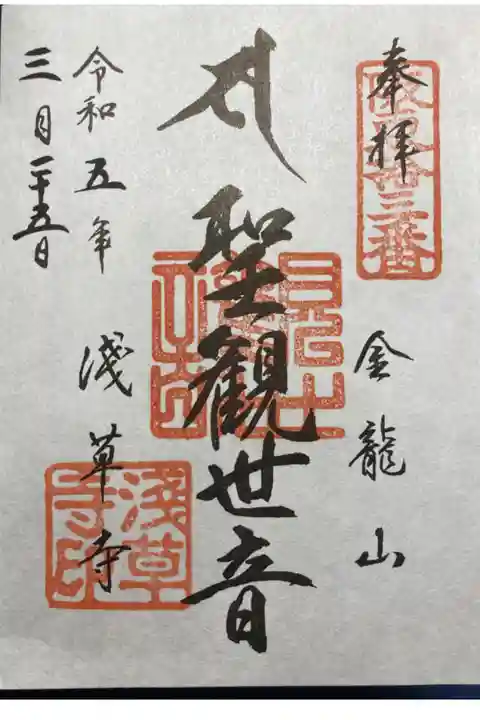 奉拝
坂東十三番
金龍山
聖観世音
浅草寺
淺草寺印
令和五年
三月二十五日